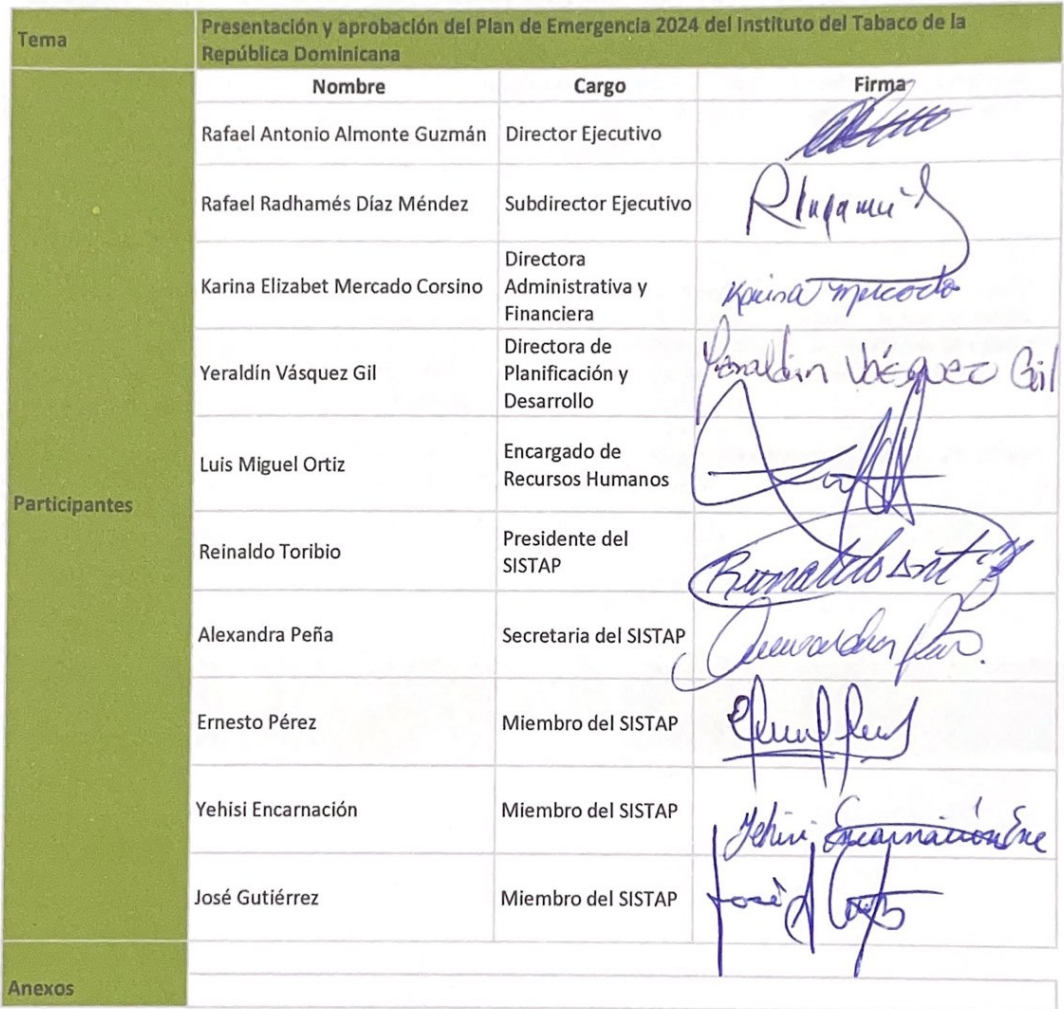 Tema
Presentación y aprobación del Plan de Emergencia 2024 del Instituto del Tabaco de la
República Dominicana
Participantes
Nombre Cargo Firma
Rafael Antonio Almonte Guzmán Director Ejecutivo
Rafael Radhamés Díaz Méndez Subdirector Ejecutivo
Karina Elizabet Mercado Corsino
Directora
Administrativa y
Financiera
Karina Mercado
Yeraldín Vásquez Gil
Directora de
Planificación y
Desarrollo
Yeraldin Vásquez Gil
Luis Miguel Ortiz
Encargado de
Recursos Humanos
Reinaldo Toribio
Presidente del
SISTAP
Alexandra Peña Secretaria del SISTAP
Ernesto Pérez Miembro del SISTAP
Yehisi Encarnación Miembro del SISTAP
Yehisi Encarnación
José Gutiérrez Miembro del SISTAP
José
Anexos